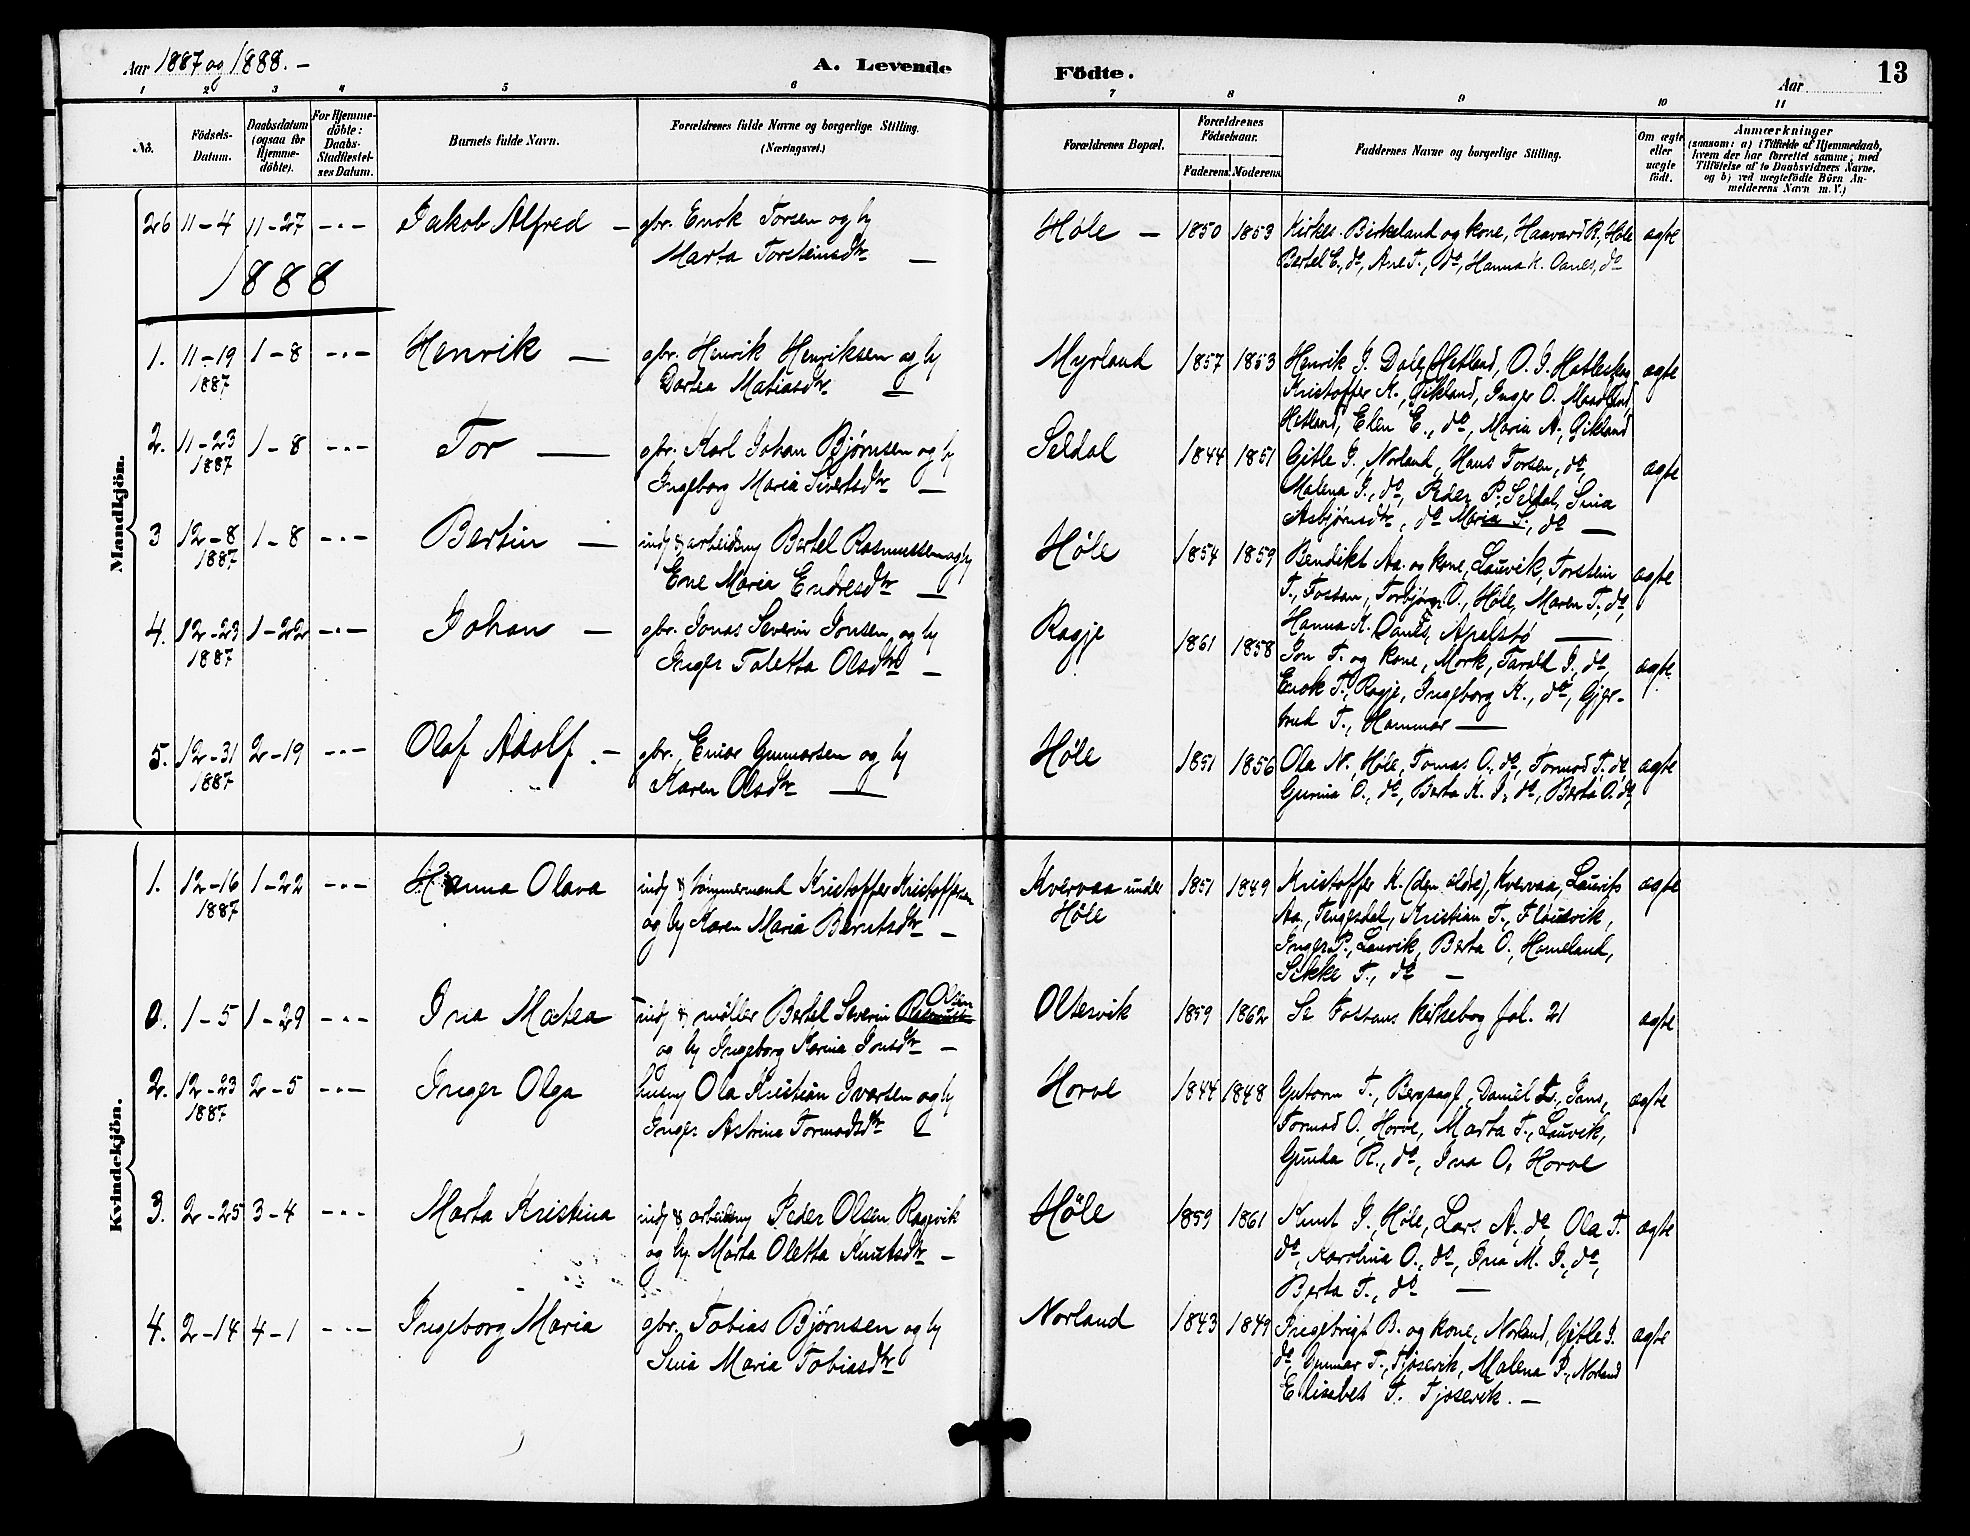 Aar 1887 og 1888. –
A. Levende
Födte.
Aar
13
1 2 3 4 5 6 7 8 9 10 11
No.
Födsels-
Datum.
Daabsdatum
(ogsaa for
Hjemme-
döbte).
For Hjemme-
döbte:
Daabs-
Stadfæstel-
ses Datum.
Barnets fulde Navn.
Forældrenes fulde Navne og borgerlige Stilling.
(Næringsvei.)
Forældrenes Bopæl.
Forældrenes
Födselsaar.
Faderens. Moderens.
Faddernes Navne og borgerlige Stilling.
Om ægte
eller
uægte
födt.
Anmærkninger
(saasom: a) i Tilfælde af Hjemmedaab,
hvem der har forrettet samme, med
Tilföielse af to Daabsvidners Navne,
og b) ved uægtefödte Börn An-
melderens Navn m. V.)
Mandkjön.
26 11–4 11–27 –"– Jakob Alfred – gbr. Enok Torsen og hu
Marta Torsteinsdtr –
Høle – 1850 1853 Kirkes. Birkeland og kone, Haavard B., Høle
Bertel E., do, Ane T., do, Hanna K. Oanes, do
ægte
1888
1. 11–19 1–8 –"– Henrik – gbr. Henrik Henriksen og hu
1887 Dortea Matiasdtr –
Myrland 1857 1853 Henrik J. Dale, Hetland, O. J.
Kristoffer K., Gikland, Inger O.
Hetland, Elen E., do, Maria A., Gikland
ægte
2. 11–23 1–8 –"– Tor – gbr. Karl Johan Bjørnsen og hu
1887 Ingeborg Maria Sivertsdtr –
Seldal 1844 1851 Gitle J., Norland, Hans Torsen, do,
Malena J., do, Peder P. Seldal, Sina
Asbjørnsdtr, do Maria S., do –
ægte
3 12–8 1–8 –"– Bertin – indj & arbeidsmg Bertel Rasmussen og hu
1887 Ene Maria Endresdtr –
Høle 1854 1859 Bendikt Aa. og kone, Lauvik, Torstein
T., Fossan, Torbjørg O., Høle, Maren T., do,
Hanna K. Oanes, Apalstø –
ægte
4. 12–23 1–22 –"– Johan – gbr. Jonas Severin Jonsen og hu
1887 Inger Taletta Olsdtr –
Ragje 1861 1858 Jon T. og kone, Mork, Tarald J., do,
Enok T., Ragje, Ingeborg K., do, Gjer-
trud T., Hammar –
ægte.
5. 12–31 2–19 –"– Olaf Adolf. – gbr. Einar Gunnarsen og hu
1887 Karen Olsdtr –
Høle 1851 1856 Ola N., Høle, Tomas O., do, Tormod T., do,
Gurina O., do, Berta K. J., do, Berta O. do,
ægte
Kvindekjön.
1. 12–16 1–22 –"– Hanna Olava indj & tømmermand Kristoffer Kristoffersen
1887 og hu Karen Maria Berntsdtr –
Kvervaa under
Høle
1851 1849 Kristoffer K. (den ældre), Kvervaa, Laurits
Aa., Tengesdal, Kristian T., Fløisvik,
Inger P., Lauvik, Berta O., Hameland,
Sikke T., do –
ægte
0. 1–5 1–29 –"– Ina Matea indj & møller Bertel Severin Olsen
og hu Ingeborg Karina Jonsdtr –
Oltesvik 1859 1862 Se Fossans kirkebog fol. 21
ægte
2. 12–23 2–5 –"– Inger Olga husmg Ola Kristian Ivarsen og hu
1887 Inger Astrina Tormodsdtr
Horve 1844 1848 Gutorm T., Bergsagl, Daniel L., Ims,
Tormod O., Horve, Marta T., Lauvik,
Gunla R., do, Ina O. Horve
ægte
3. 2–25 3–4 –"– Marta Kristina indj & arbeidsmg Peder Olsen Ragsvik
og hu. Marta Oletta Knutsdtr –
Høle 1859 1861 Knut J., Høle, Lars A., do Ola T.
do, Karolina O., do, Ina M. J., do,
Berta T., do –
ægte
4. 2–14 4–1 –"– Ingeborg Maria gbr. Tobias Bjørnsen og hu
Sina Maria Tobiasdtr
Norland 1843 1849 Ingebrigt B. og kone, Norland, Gitle J.
do, Gunnar T., Tjøsevik, Malena P., Norland
Elisabet T. Tjøsevik. –
ægte